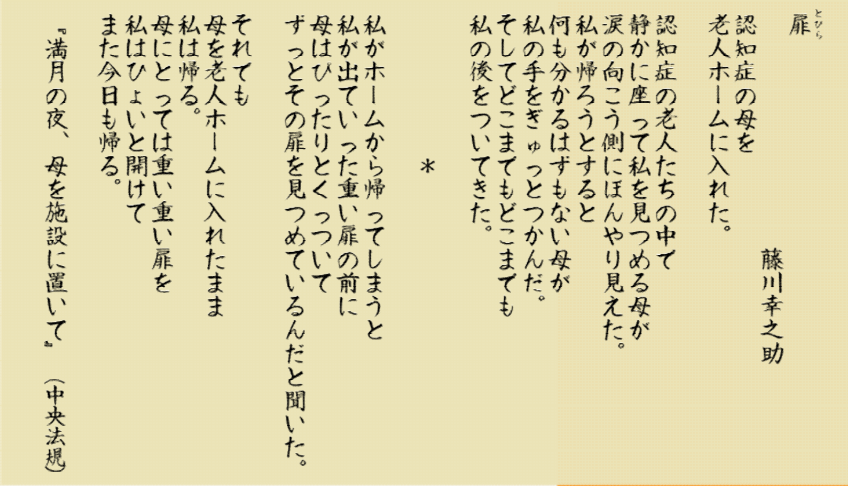 扉
とびら
藤川幸之助
認知症の母を
老人ホームに入れた。
認知症の老人たちの中で
静かに座って私を見つめる母が
涙の向こう側にぼんやり見えた。
私が帰ろうとすると
何も分かるはずもない母が
私の手をぎゅっとつかんだ。
そしてどこまでもどこまでも
私の後をついてきた。
＊
私がホームから帰ってしまうと
私が出ていった重い扉の前に
母はぴったりとくっついて
ずっとその扉を見つめているんだと聞いた。
それでも
母を老人ホームに入れたまま
私は帰る。
母にとっては重い重い扉を
私はひょいと開けて
また今日も帰る。
『満月の夜、母を施設に置いて』（中央法規）